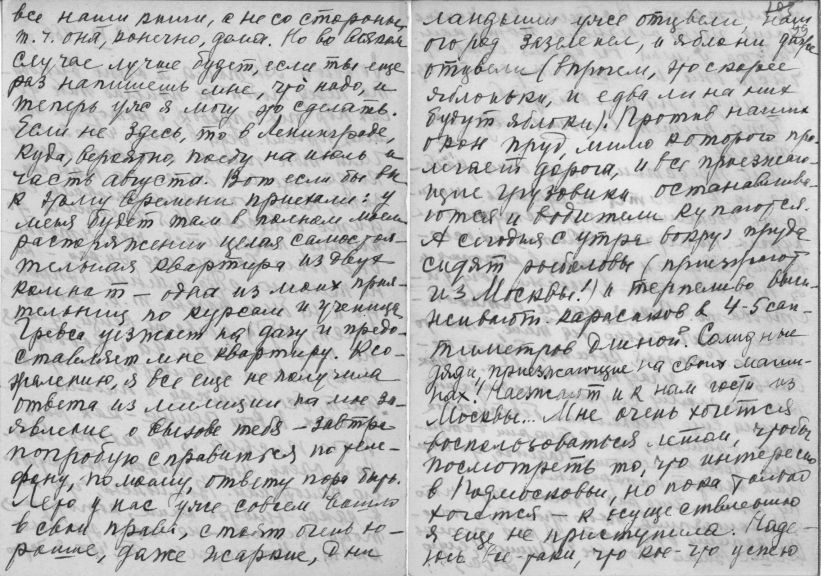 все наши книги, а не со стороны,
т.ч. она, конечно, дома. Но во всяком
случае лучше будет, если ты еще
раз напишешь мне, что надо, и
теперь уж я могу это сделать.
Если не здесь, то в Ленинграде,
куда, вероятно, поеду на июль и
часть августа. Вот если бы вы
к этому времени приехали: у
меня будет там в полном моем
распоряжении целая самостоя-
тельная квартира из двух
комнат — одна из моих прия-
тельниц по курсам и учениц
Гревса уезжает на дачу и предо-
ставляет мне квартиру. К со-
жалению, я все еще не получила
ответа из милиции на мое за-
явление о вызове тебя — завтра
попробую справиться по теле-
фону, по-моему, ответу пора быть.
Лето у нас уже совсем вошло
в свои права, стоят очень хо-
рошие, даже жаркие, дни
ландыши уже отцвели, наш
огород зазеленел, и яблони даже
отцвели (впрочем, это скорее
яблоньки, и едва ли на них
будут яблоки). Против наших
окон пруд, мимо которого про-
легает дорога, и все проезжаю-
щие грузовики останавлива-
ются и водители купаются.
А сегодня с утра вокруг пруда
сидят рыболовы (приезжают
из Москвы!) и терпеливо выу-
живают карасиков в 4-5 сан-
тиметров длиной. Солидные
дяди, приезжающие на своих маши-
нах! Наезжают и к нам гости из
Москвы... Мне очень хочется
воспользоваться летом, чтобы
посмотреть то, что интересно
в Подмосковьи, но пока только
хочется — к осуществлению
я еще не приступила. Наде-
юсь все-таки, что кое-что успею